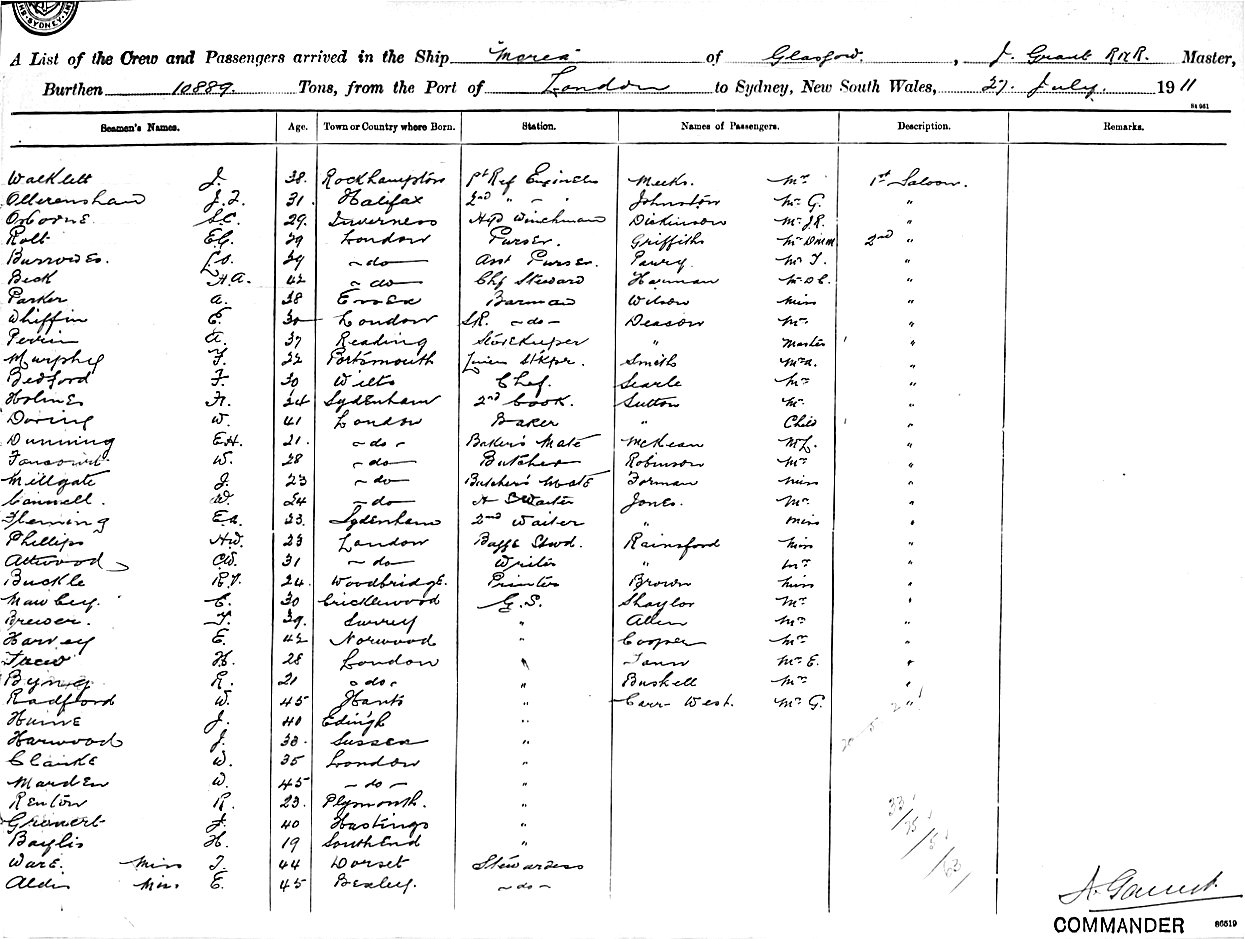 SYDNEY
A List of the Crew and Passengers arrived in the Ship "Morea" of Glasgow, J. Grant RNR. Master,
Burthen 10889. Tons, from the Port of London to Sydney, New South Wales, 27. July. 1911
Seamen's Names. Age. Town or Country where Born. Station. Names of Passengers. Description. Remarks.
Walklett J. 38. Rockhampton Meeks. Mr 1st Saloon.
Olleranshaw J.F. 31. Halifax 2nd " Johnston Mr G. "
Osborne 29. Inverness Winchman Dickinson Mr J.R. "
Rolt EG. 29 London Purser. Griffiths 2nd "
Burrowes. 29 -do- Asst Purser. "
Beck H.A. 42 -do- Chf Steward Harman "
Parker A. 38 Essex Barman Wilson Miss "
Whiffin E. 30 London S.R. -do- Deason Mr "
Perrin A. 37 Reading Storekeeper " Master "
Murphy F. 22 Portsmouth Linen Stkpr. Smith "
Bedford F. 30 Wilts Chef. Searle Mr "
Holmes 24 Sydenham 2nd Cook. Sutton "
Doring W. 41 London Baker " Child "
Dunning E.H. 21. -do- Baker's Mate McKean "
W. 28 -do- Butcher Robinson Mr "
Millgate J. 23 -do- Butcher's Mate Forman Miss "
Cannell. W. 24 -do- Waiter Jones. "
Fleming Ea. 23. Sydenham 2nd Waiter " Miss "
Phillips H.W. 23 London Stwd. Rainsford Miss "
Attwood C.W. 31 -do- Writer " "
Buckle 24. Woodbridge. Printer Brown Miss "
Mawbey. C. 30 Cricklewood G.S. Shaylor Mr "
Brewer. F. 39. Surrey " Allen Mr "
Harvey E. 42 Norwood " Cooper Mr "
H. 28 London " Mr E. "
Byng R. 21 -do- " Buskell Mr "
Radford W. 45 Hants " Carr-West. Mr G. "
Hume J. 40 Edin'gh "
Harwood J. 33. Sussex "
Clarke W. 35 London "
Marden W. 45 -do- "
Renton R. 23. Plymouth. "
J. 40 Hastings "
Baylis H. 19 Southend "
Ware. Miss 44 Dorset Stewardess
E. 45 Bexley. -do-
COMMANDER 86519